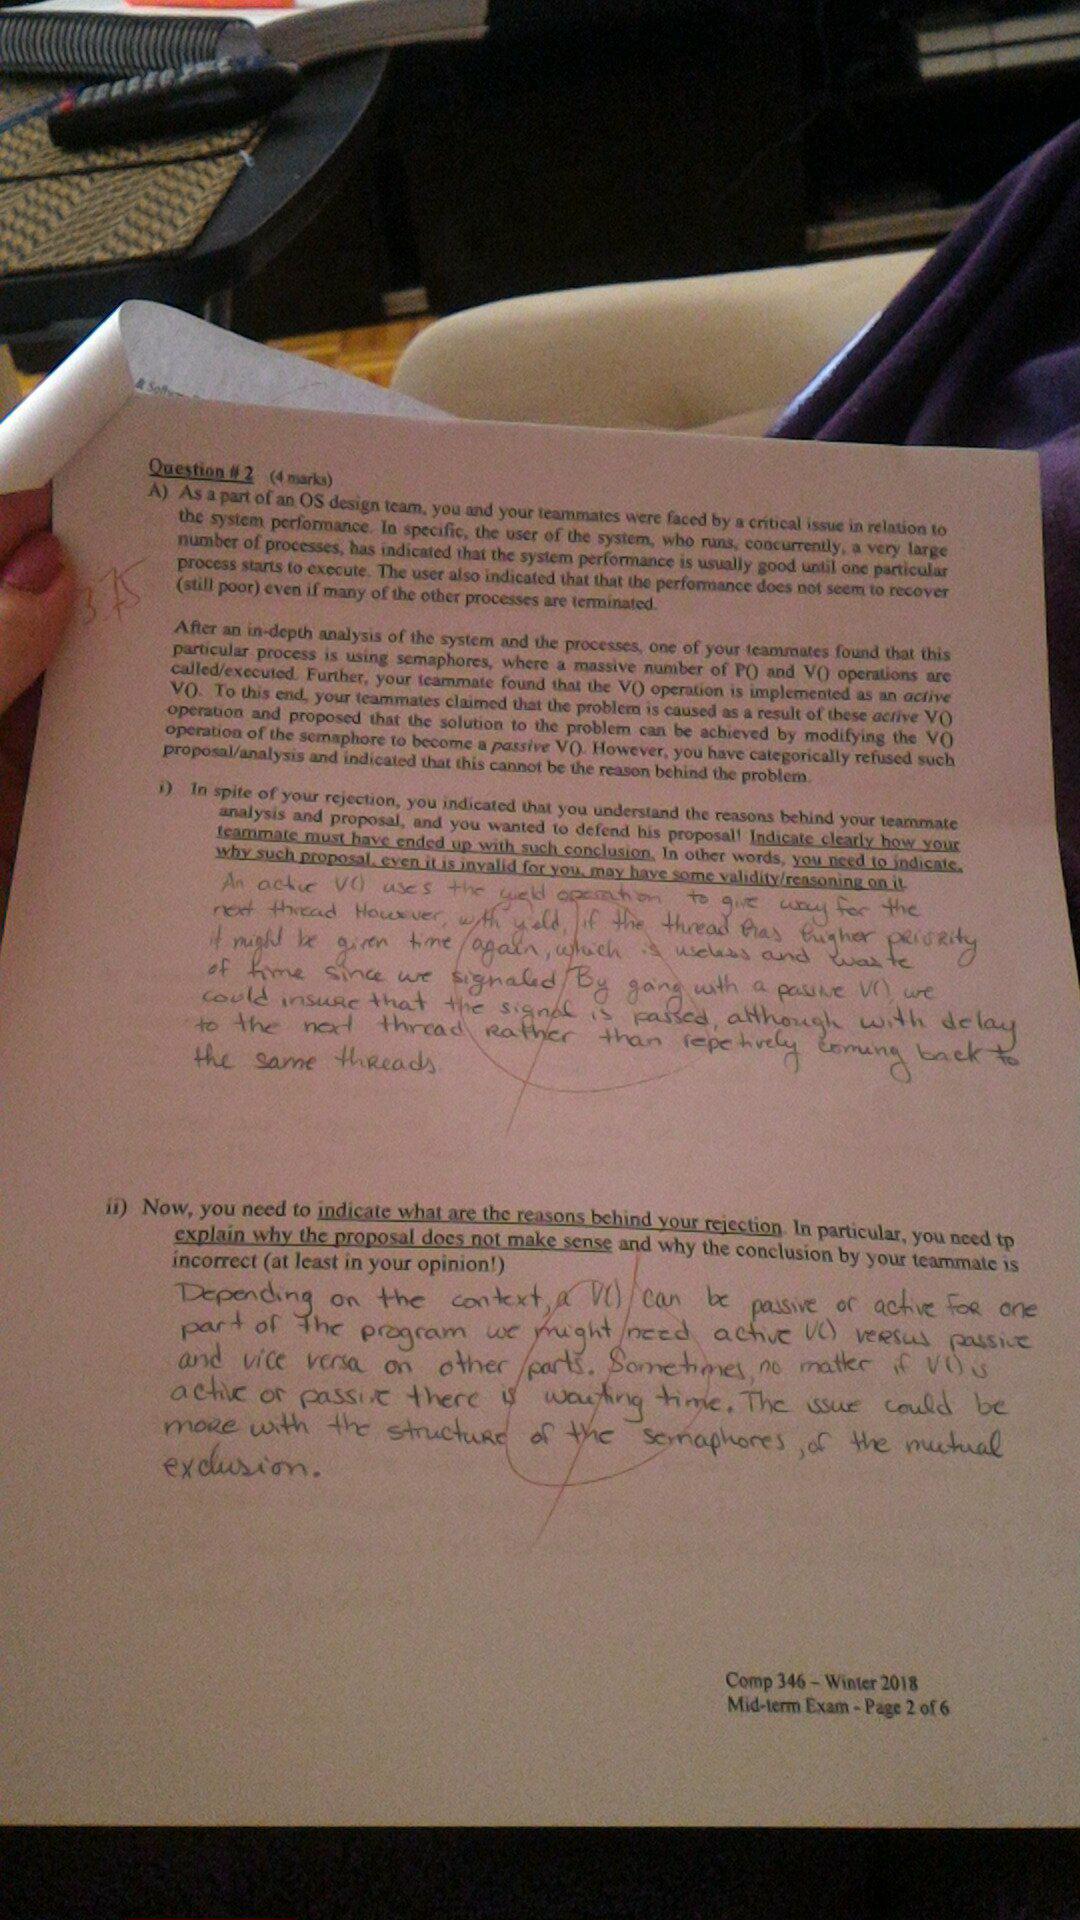 & Softw
Question # 2 (4 marks)
A) As a part of an OS design team, you and your teammates were faced by a critical issue in relation to
the system performance. In specific, the user of the system, who runs, concurrently, a very large
number of processes, has indicated that the system performance is usually good until one particular
process starts to execute. The user also indicated that that the performance does not seem to recover
(still poor) even if many of the other processes are terminated.
3.75
After an in-depth analysis of the system and the processes, one of your teammates found that this
particular process is using semaphores, where a massive number of P() and V() operations are
called/executed. Further, your teammate found that the V() operation is implemented as an active
V(). To this end, your teammates claimed that the problem is caused as a result of these active V()
operation and proposed that the solution to the problem can be achieved by modifying the V()
operation of the semaphore to become a passive V(). However, you have categorically refused such
proposal/analysis and indicated that this cannot be the reason behind the problem.
i) In spite of your rejection, you indicated that you understand the reasons behind your teammate
analysis and proposal, and you wanted to defend his proposal! Indicate clearly how your
teammate must have ended up with such conclusion. In other words, you need to indicate,
why such proposal, even it is invalid for you, may have some validity/reasoning on it.
An active V() uses the yield operation to give way for the
next thread However, with yield, if the thread has higher priority
it might be given time again, which is useless and waste
of time since we signaled By going with a passive V() we
could insure that the signal is passed, although with delay
to the next thread Rather than repetively coming back to
the same threads.
ii) Now, you need to indicate what are the reasons behind your rejection. In particular, you need tp
explain why the proposal does not make sense and why the conclusion by your teammate is
incorrect (at least in your opinion!)
Depending on the context, a V() can be passive or active For one
part of the program we might need active V() versus passive
and vice versa on other parts. Sometimes, no matter if V() is
active or passive there is waiting time. The issue could be
more with the structure of the semaphores, of the mutual
exclusion.
Comp 346 – Winter 2018
Mid-term Exam - Page 2 of 6